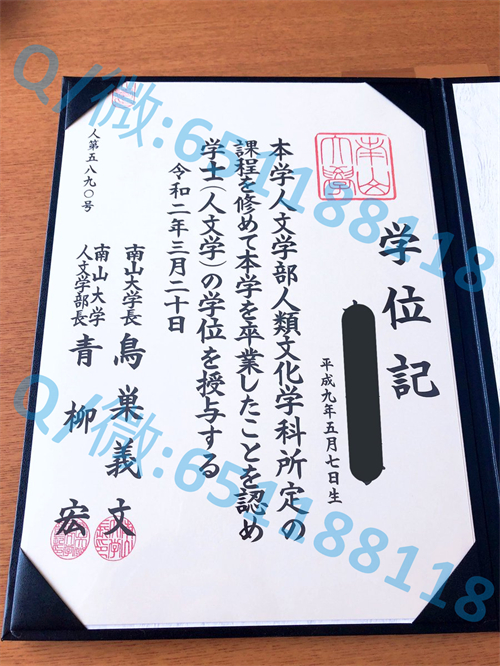 学位記
南山大学
平成九年五月七日生
本学人文学部人類文化学科所定の
課程を修めて本学を卒業したことを認め
学士(人文学)の学位を授与する
令和二年三月二十日
南山大学長 鳥巣義文
南山大学
人文学部長 青柳 宏
人第五八九〇号
Q/微:651188118
Q/微:651188118